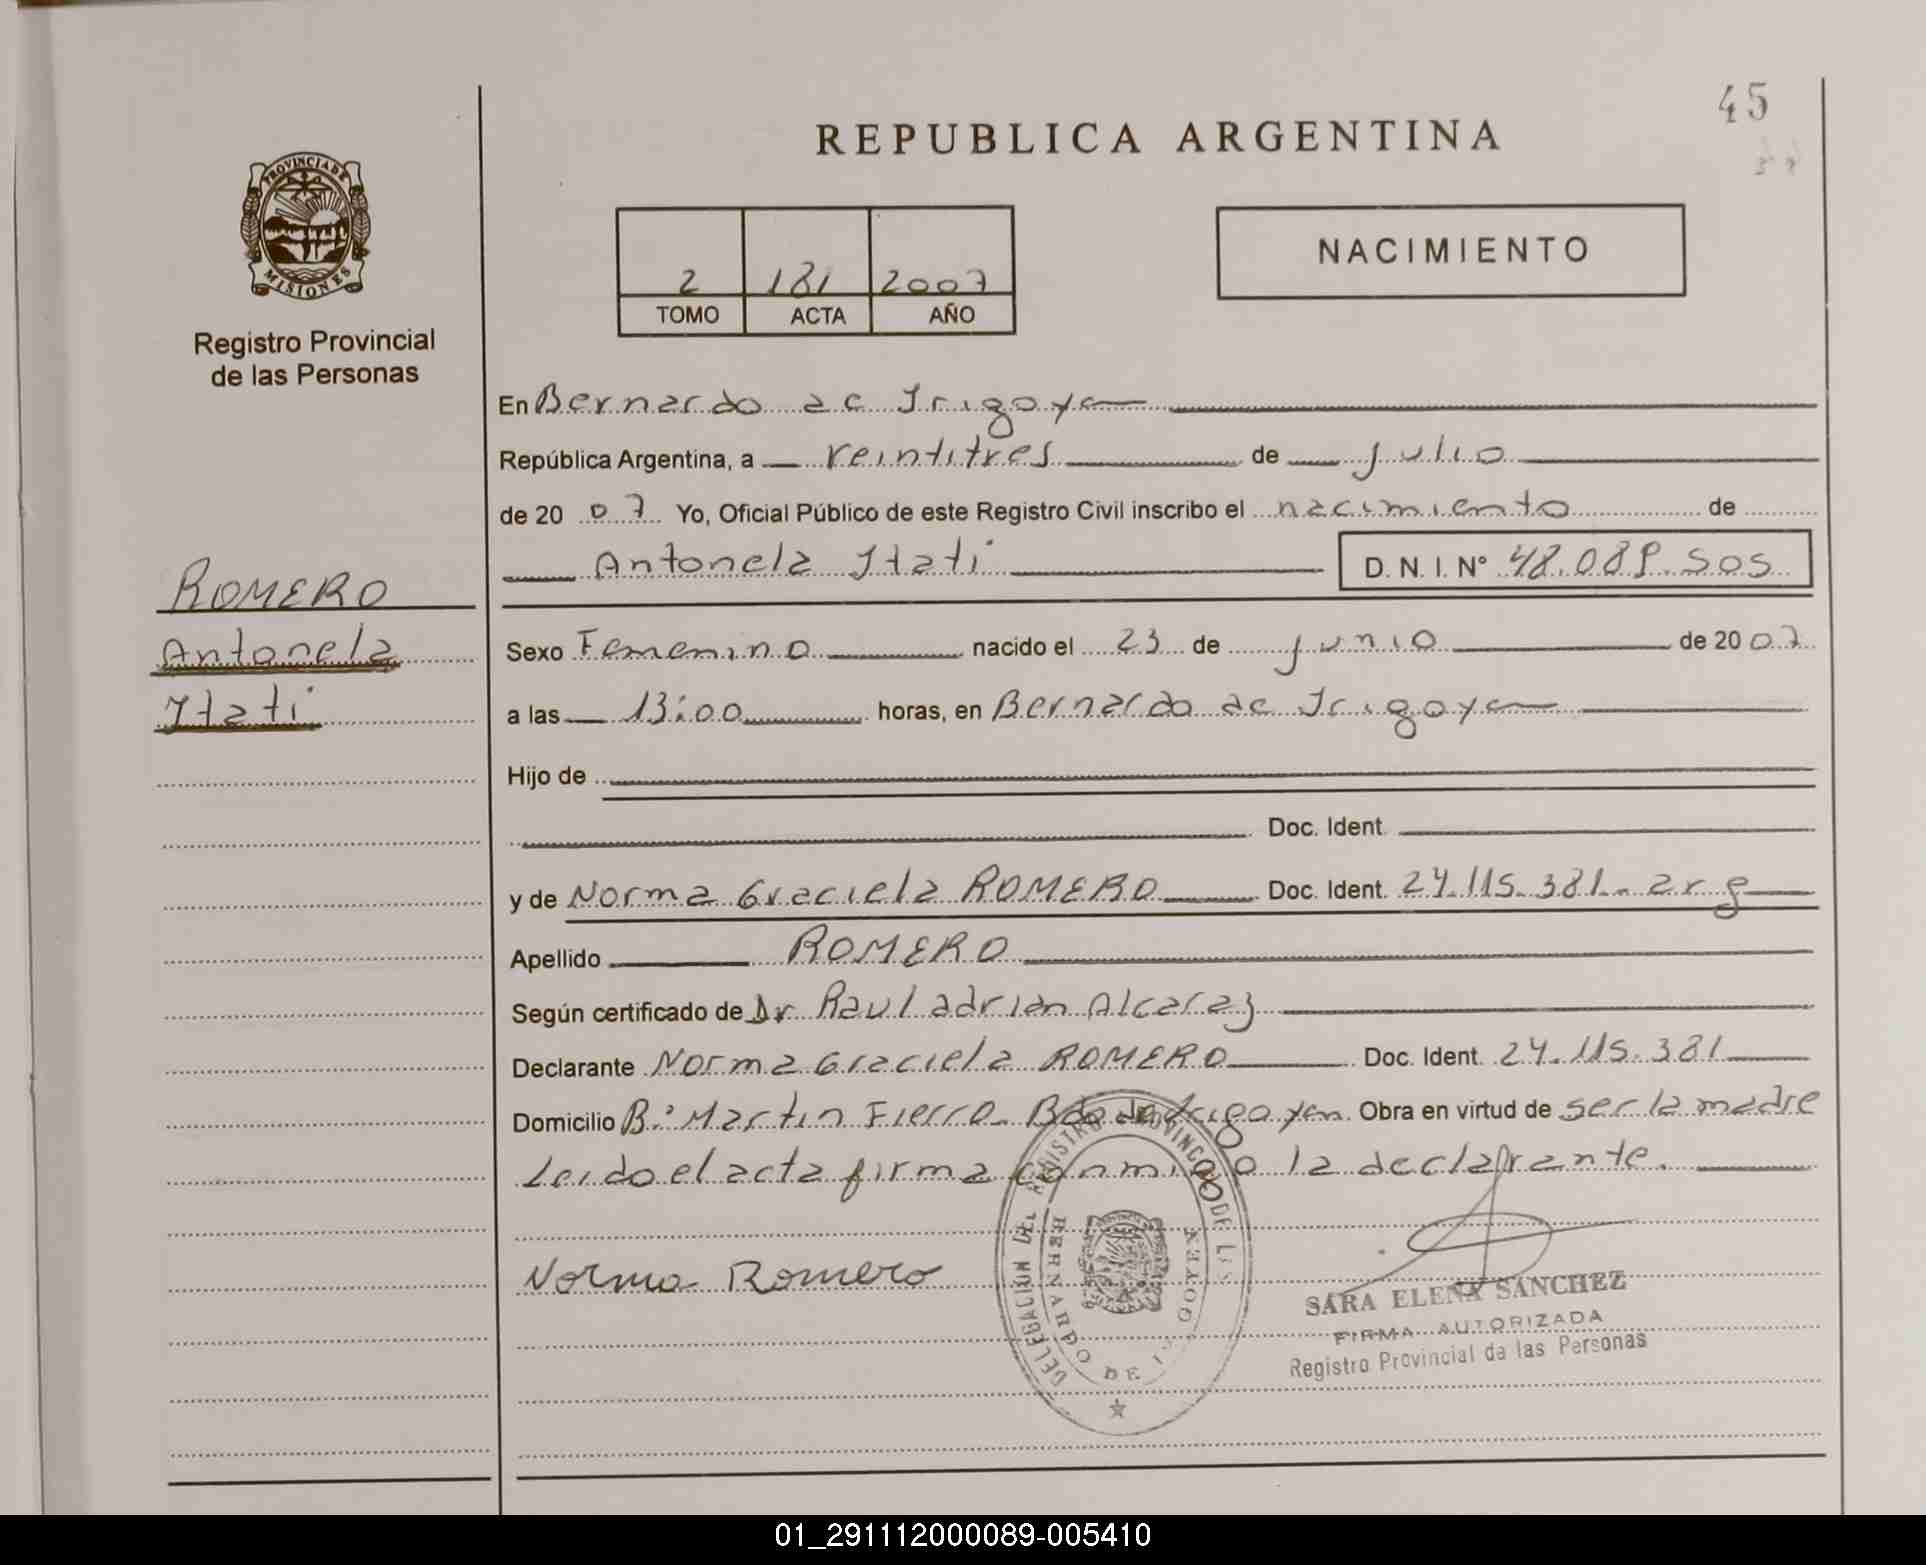 45
REPUBLICA ARGENTINA
PROVINCIA DE
MISIONES
Registro Provincial
de las Personas
2 181 2007
TOMO ACTA AÑO
NACIMIENTO
En Bernardo de Irigoyen
República Argentina, a veintitres de julio
de 20 07 Yo, Oficial Público de este Registro Civil inscribo el nacimiento de
Antonela Itati D. N. I. Nº 48.089.505
ROMERO
Antonela
Itati
Sexo Femenino nacido el 23 de junio de 20 07
a las 13:00 horas, en Bernardo de Irigoyen
Hijo de
Doc. Ident.
y de Norma Graciela ROMERO Doc. Ident. 24.115.381.- arg
Apellido ROMERO
Según certificado de Dr Raul adrian Alcaraz
Declarante Norma Graciela ROMERO Doc. Ident. 24.115.381
Domicilio Bº Martin Fierro - Bdo de Irigoyen. Obra en virtud de ser la madre
Leido el acta firma conmigo la declarante.
Norma Romero
DELEGACIÓN DEL REGISTRO PROVINCIAL DE LAS
BERNARDO DE IRIGOYEN
SARA ELENA SANCHEZ
FIRMA AUTORIZADA
Registro Provincial de las Personas
01_291112000089-005410